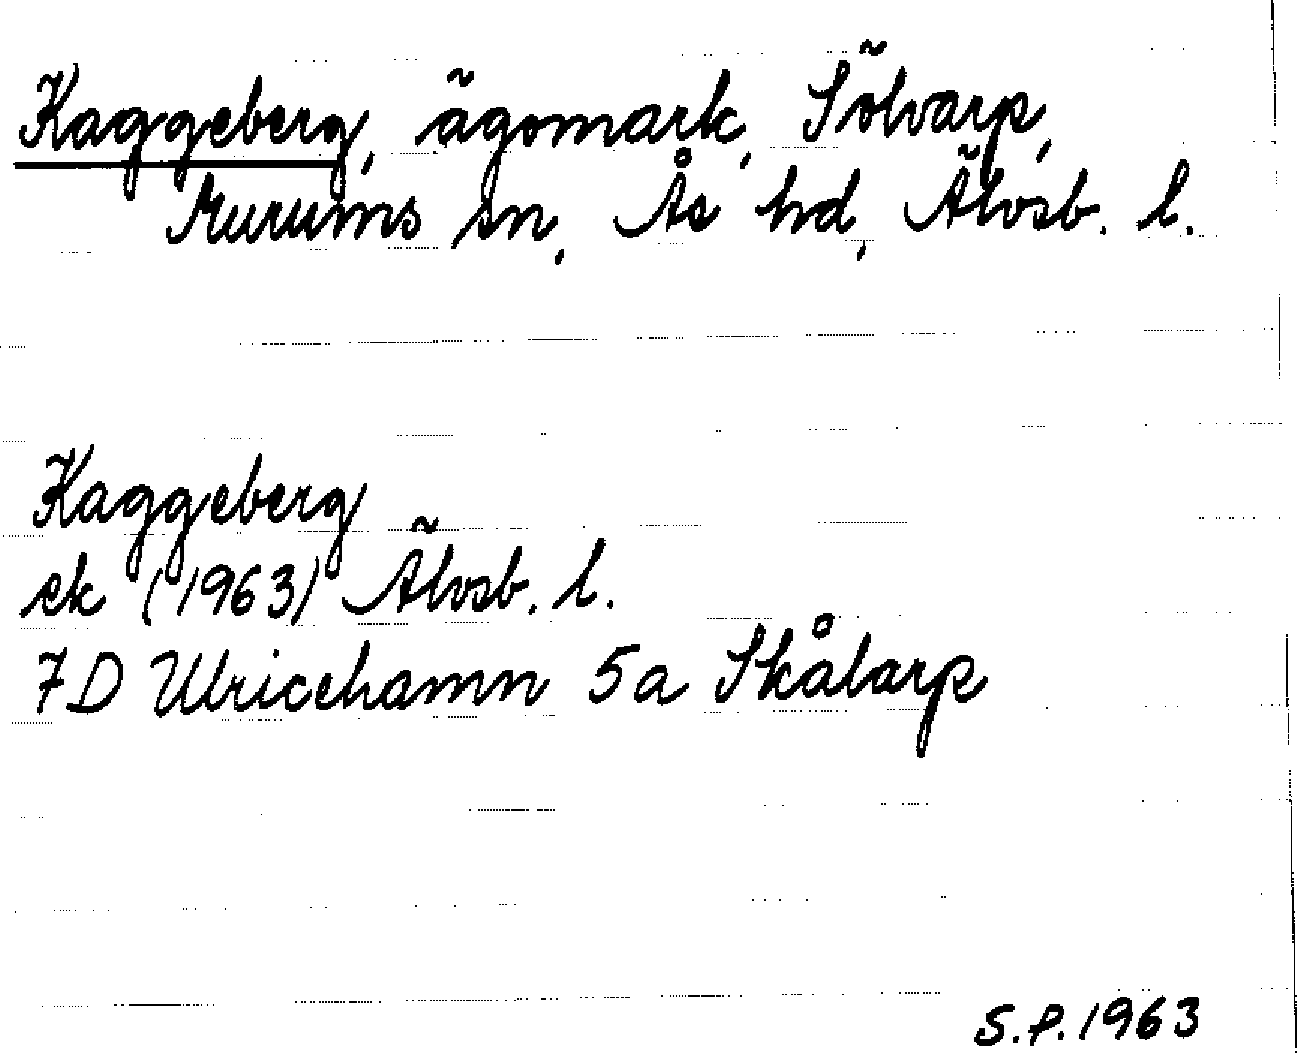 Kaggeberg, ägomark, Sölvarp,
Murums sn, Ås hd, Älvsb. l.
Kaggeberg
ek (1963) Älvsb. l.
7D Ulricehamn 5a Skålarp
S.P. 1963